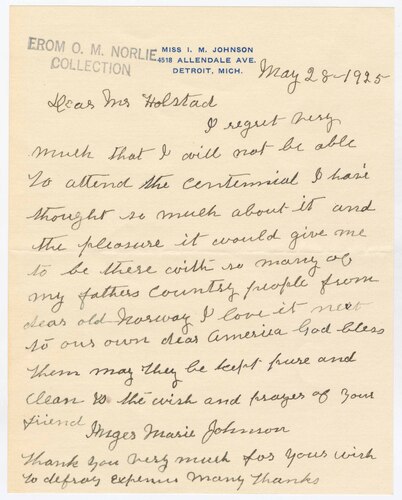 FROM O. M. NORLIE
COLLECTION
MISS I. M. JOHNSON
4518 ALLENDALE AVE.
DETROIT, MICH.
May 28-1925
Dear Mr Holstad
I regret very
much that I will not be able
to attend the centennial I have
thought so much about it and
the pleasure it would give me
to be there with so many of
my fathers country people from
dear old Norway I love it next
to our own dear America God bless
them may they be kept pure and
clean is the wish and prayer of your
friend
Inger Marie Johnson
Thank you very much for your wish
to defray expenses Many Thanks